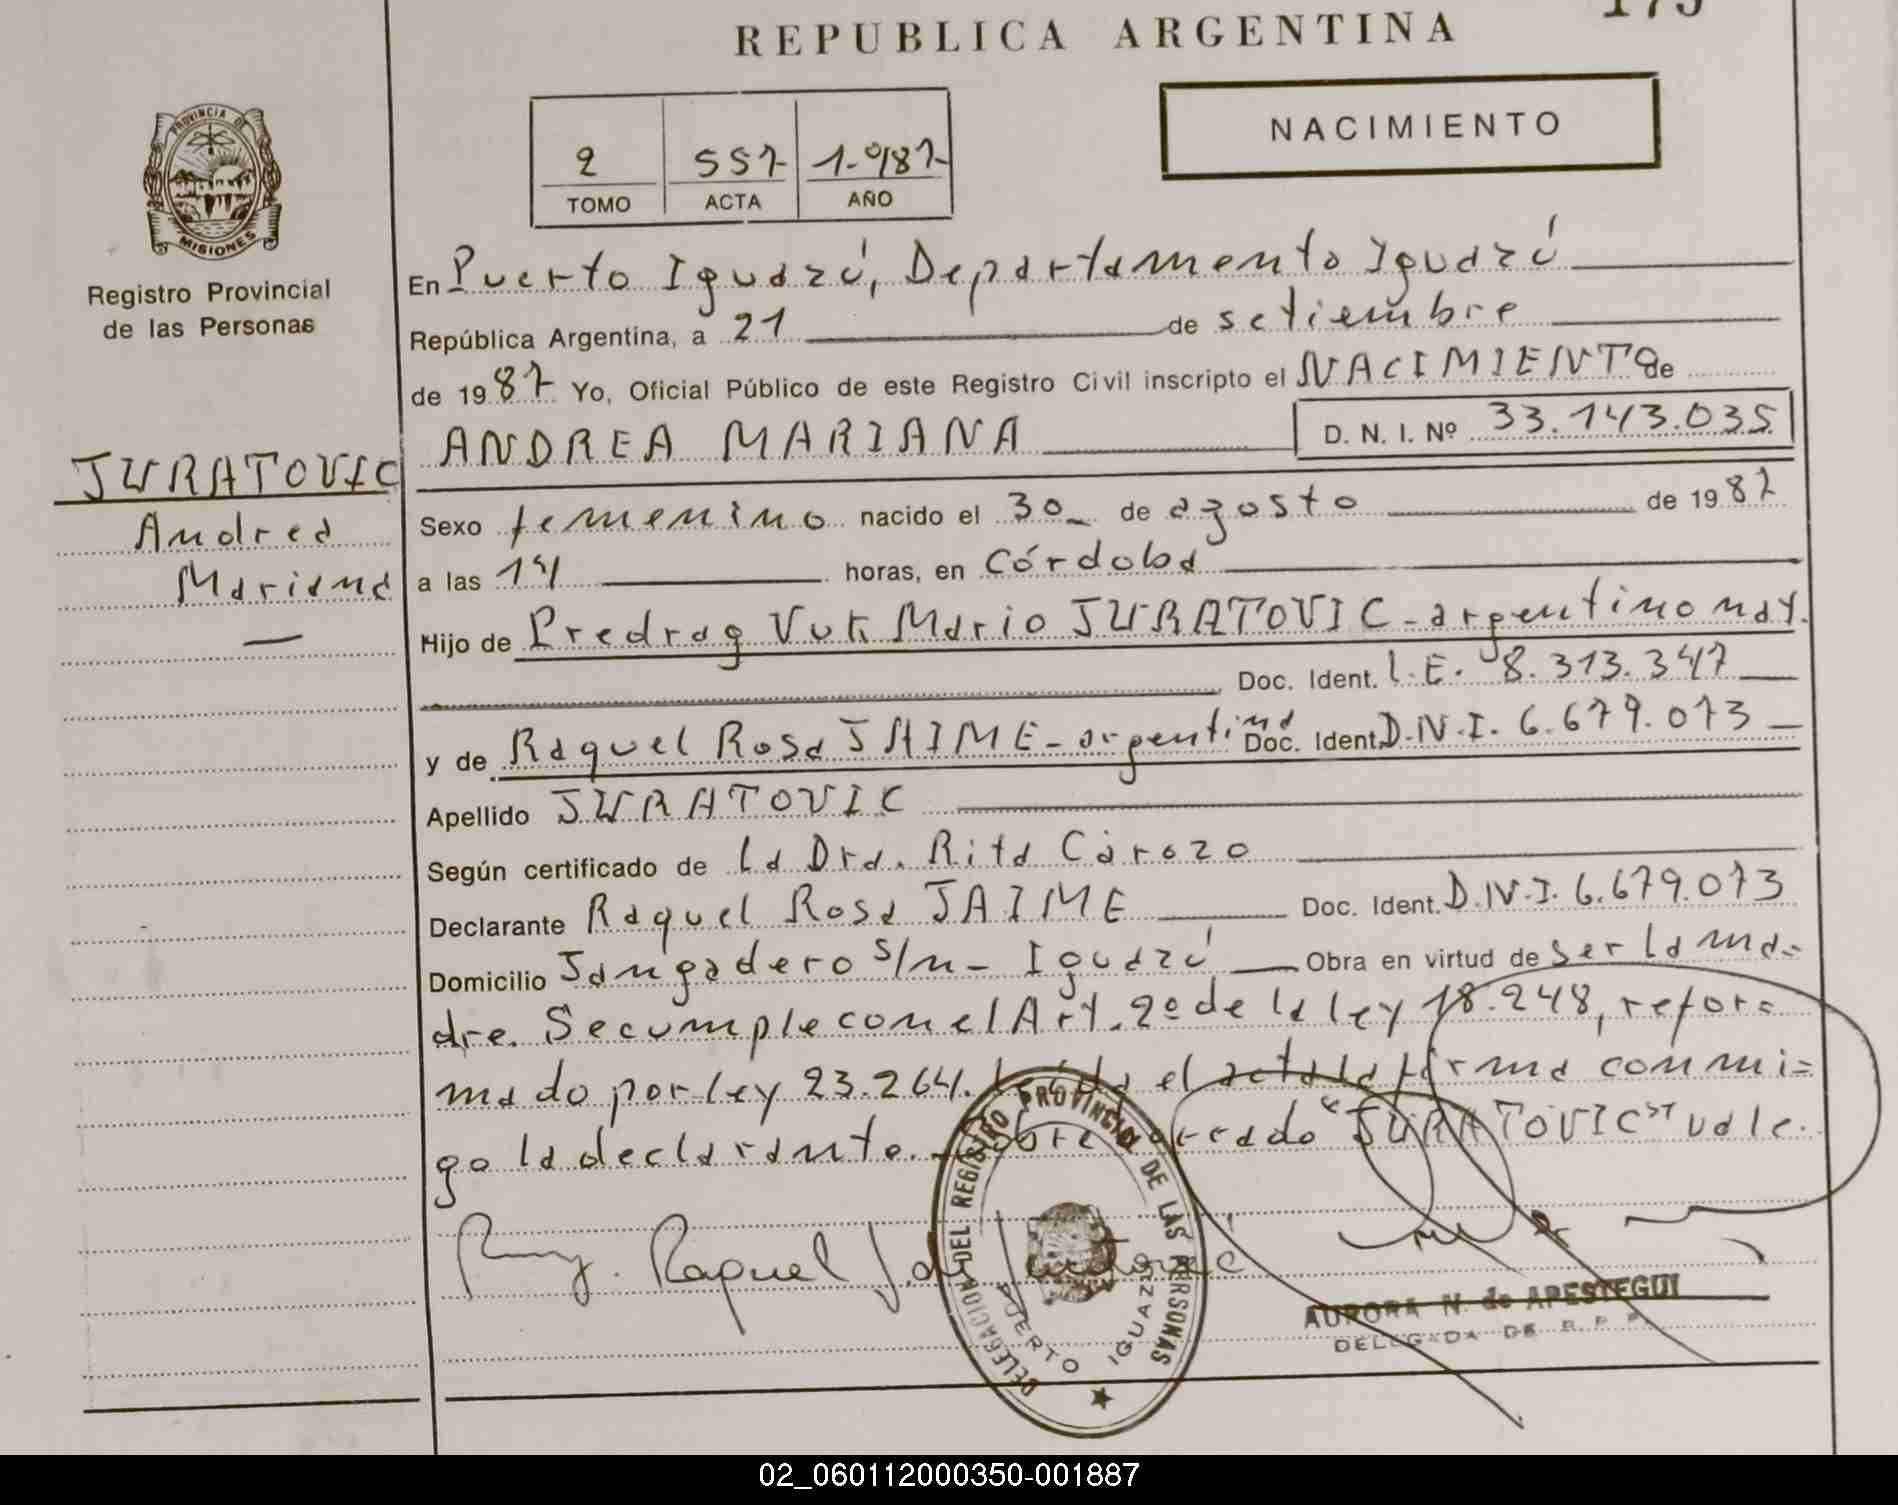 175
REPUBLICA ARGENTINA
PROVINCIA DE
MISIONES
Registro Provincial
de las Personas
2 557- 1.987-
TOMO ACTA AÑO
NACIMIENTO
En Puerto Iguazú, Departamento Iguazú
República Argentina, a 21 de setiembre
de 1987- Yo, Oficial Público de este Registro Civil inscripto el NACIMIENTO de
ANDREA MARIANA D. N. I. Nº 33.143.035
JURATOVIC
Andrea
Mariana
Sexo femenino nacido el 30 de agosto de 1987
a las 14 horas, en Córdoba
Hijo de Predrag Vuk Mario JURATOVIC - argentino nat.
Doc. Ident. L.E. 8.313.347
y de Raquel Rosa JAIME - argentina Doc. Ident. D.N.I. 6.679.073
Apellido JURATOVIC
Según certificado de la Dra. Rita Carozo
Declarante Raquel Rosa JAIME Doc. Ident. D.N.I. 6.679.073
Domicilio Jangadero s/n - Iguazú Obra en virtud de ser la ma=
dre. Se cumple con el Art. 2º de la ley 18.248, refor=
mado por ley 23.264. Leída el acta la firma conmi=
go la declarante. Sobre "JURATOVIC" vale.
Raquel J. de
DELEGACION DEL REGISTRO PROVINCIAL DE LAS PERSONAS
PUERTO IGUAZU
AURORA N. de APESTEGUI
DELEGADA DE R. P. P.
02_060112000350-001887